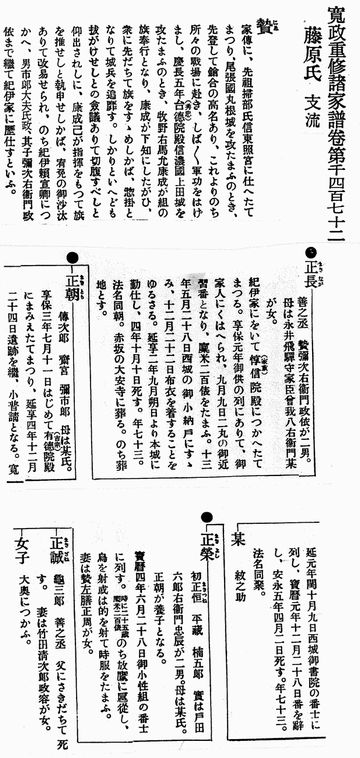 寛政重修諸家譜巻第千四百七十二
藤原氏 支流
贄
家傳に、先祖掃部氏信東照宮に仕へたて
まつり、尾張國丸根城を攻たまふのとき、
先登して鎗合の高名あり、これよりのち
所々の戰場に赴き、しば〱軍功をはけ
まし、慶長五年台德院殿信濃國上田城を
攻たまふのとき、牧野右馬允康成が組の
旗奉行となり、康成が下知にしたがひ、
衆に先だちて旗をすゝめしかば、惣掛と
なりて城兵を追罪す。しかりといへども
拔がけせしとの僉議ありて切腹すべしと
仰出されしに、康成己が指揮をもつて旗
を推せしと執申せしかば、宥免の御沙汰
ありて改易せられ、のち紀伊頼宣卿につ
かへ、男市郎大夫氏政、其子彌次右衞門政
依まで繼て紀伊家に歴仕すといふ。
正長
善之丞 贄彌次右衞門政依が二男。
母は永井飛驒守家臣曾我八右衞門某
が女。
紀伊家にをいて惇信院殿につかへたて
まつる。享保元年御供の列にありて、御
家人にくはへられ、九月九日二丸の御近
習番となり、廩米二百俵をたまふ。十三
年五月二十八日西城の御小納戸にすゝ
み、十二月二十二日布衣を着することを
ゆるさる。延享二年九月朔日より本城に
勤仕し、四年十月十日死す。年七十三。
法名同朝。赤坂の大安寺に葬る。のち葬
地とす。
正朝
傳次郎 齋宮 彌市郎 母は某氏。
享保三年七月十一日はじめて有德院殿
にまみえたてまつり、延享四年十二月
二十四日遺跡を繼、小普請となる。寛
延元年閏十月九日西城御書院の番士に
列し、寶曆元年十二月二十八日番を辭
し、安永五年四月二日死す。年七十三。
法名同聚。
某
紋之助
正榮
初正恒 平藏 楠五郎 實は戸田
六郎右衞門忠辰が二男。母は某氏。
正朝が養子となる。
寶曆四年六月二十八日御小性組の番士
に列す。時に二十五歳廩米二百俵 のち放鷹に扈從し、
鳥を射或は的を射て時服をたまふ。
妻は贄左膳正周が女。
正誠
龜三郎 善之丞 父にさきだちて死
す。 妻は竹田清次郎政容が女。
女子
大奥につかふ。